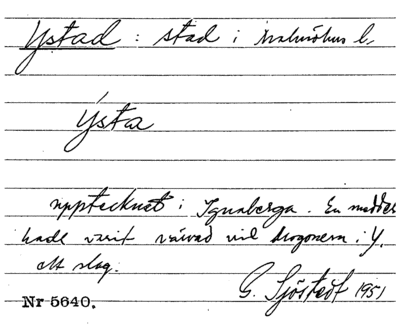 Ystad : stad i Malmöhus l.
Ýsta
upptecknat i Ignaberga. En
hade varit värvad vid dragonern i Y.
ett slag.
G. Sjöstedt 1951
Nr 5640.